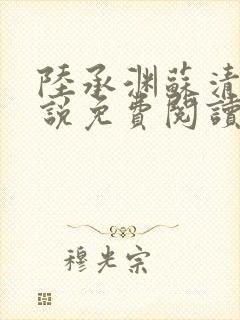 陸承渊蘇清
說免費閱讀
穆光宗